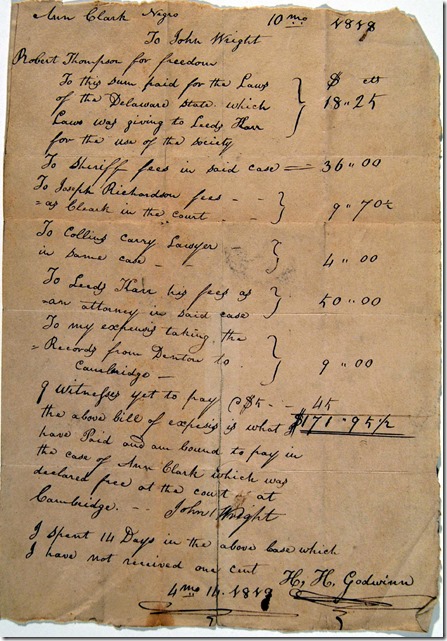 Ann Clark Negro 10 mo 1818
To John Wright
Robert Thompson for freedom
To this sum paid for the Laws $ cts
of the Delaware state which 18"25
Laws was giving to Leeds Karr
for the use of the society
To Sheriff fees in said case = 36"00
To Joseph Richardson fees - -
=as Cleark in the court - - 9"70½
To Collins carry Lawyer
in same case - - 4"00
To Leeds Karr his fees as
=an attorney in said case 50"00
To my expenses taking the
=Records from Denton to 9"00
Cambridge —
9 Witnesses yet to pay @ $5 - - 45
the above bill of expesis is what I $171"95½
have Paid and am bound to pay in
the case of Ann Clark which was
declared free at the court - at
Cambridge. - - John Wright
I spent 14 Days in the above Case which
I have not received one cent
H. H. Godwinn
4 mo 14. 1818